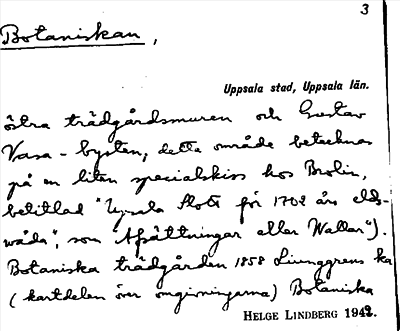 3
Botaniskan,
Uppsala stad, Uppsala län.
östra trädgårdsmuren och Gustav
Vasa-bysten, detta område betecknas
på en liten specialskiss hos Brolin,
betitlad "Upsala Slott för 1702 års elds-
wåda", som Afsättningar eller Wallar").
Botaniska trädgården 1858 Ljunggrens ka
(kartdelen över omgivningarna) Botaniska
HELGE LINDBERG 1942.